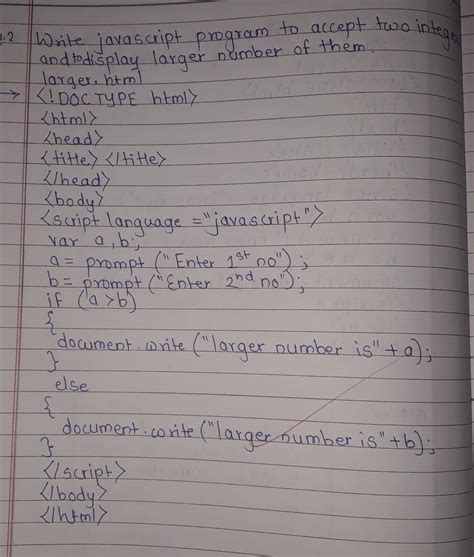 .2 Write javascript program to accept two integer
and to display larger number of them.
larger.html
→ <!DOCTYPE html>
<html>
<head>
<title> </title>
</head>
<body>
<script language ="javascript">
var a,b;
a= prompt ("Enter 1st no") ;
b= prompt ("Enter 2nd no");
if (a>b)
{
document.write ("larger number is"+a);
}
else
{
document.write ("larger number is"+b);
}
</script>
</body>
</html>